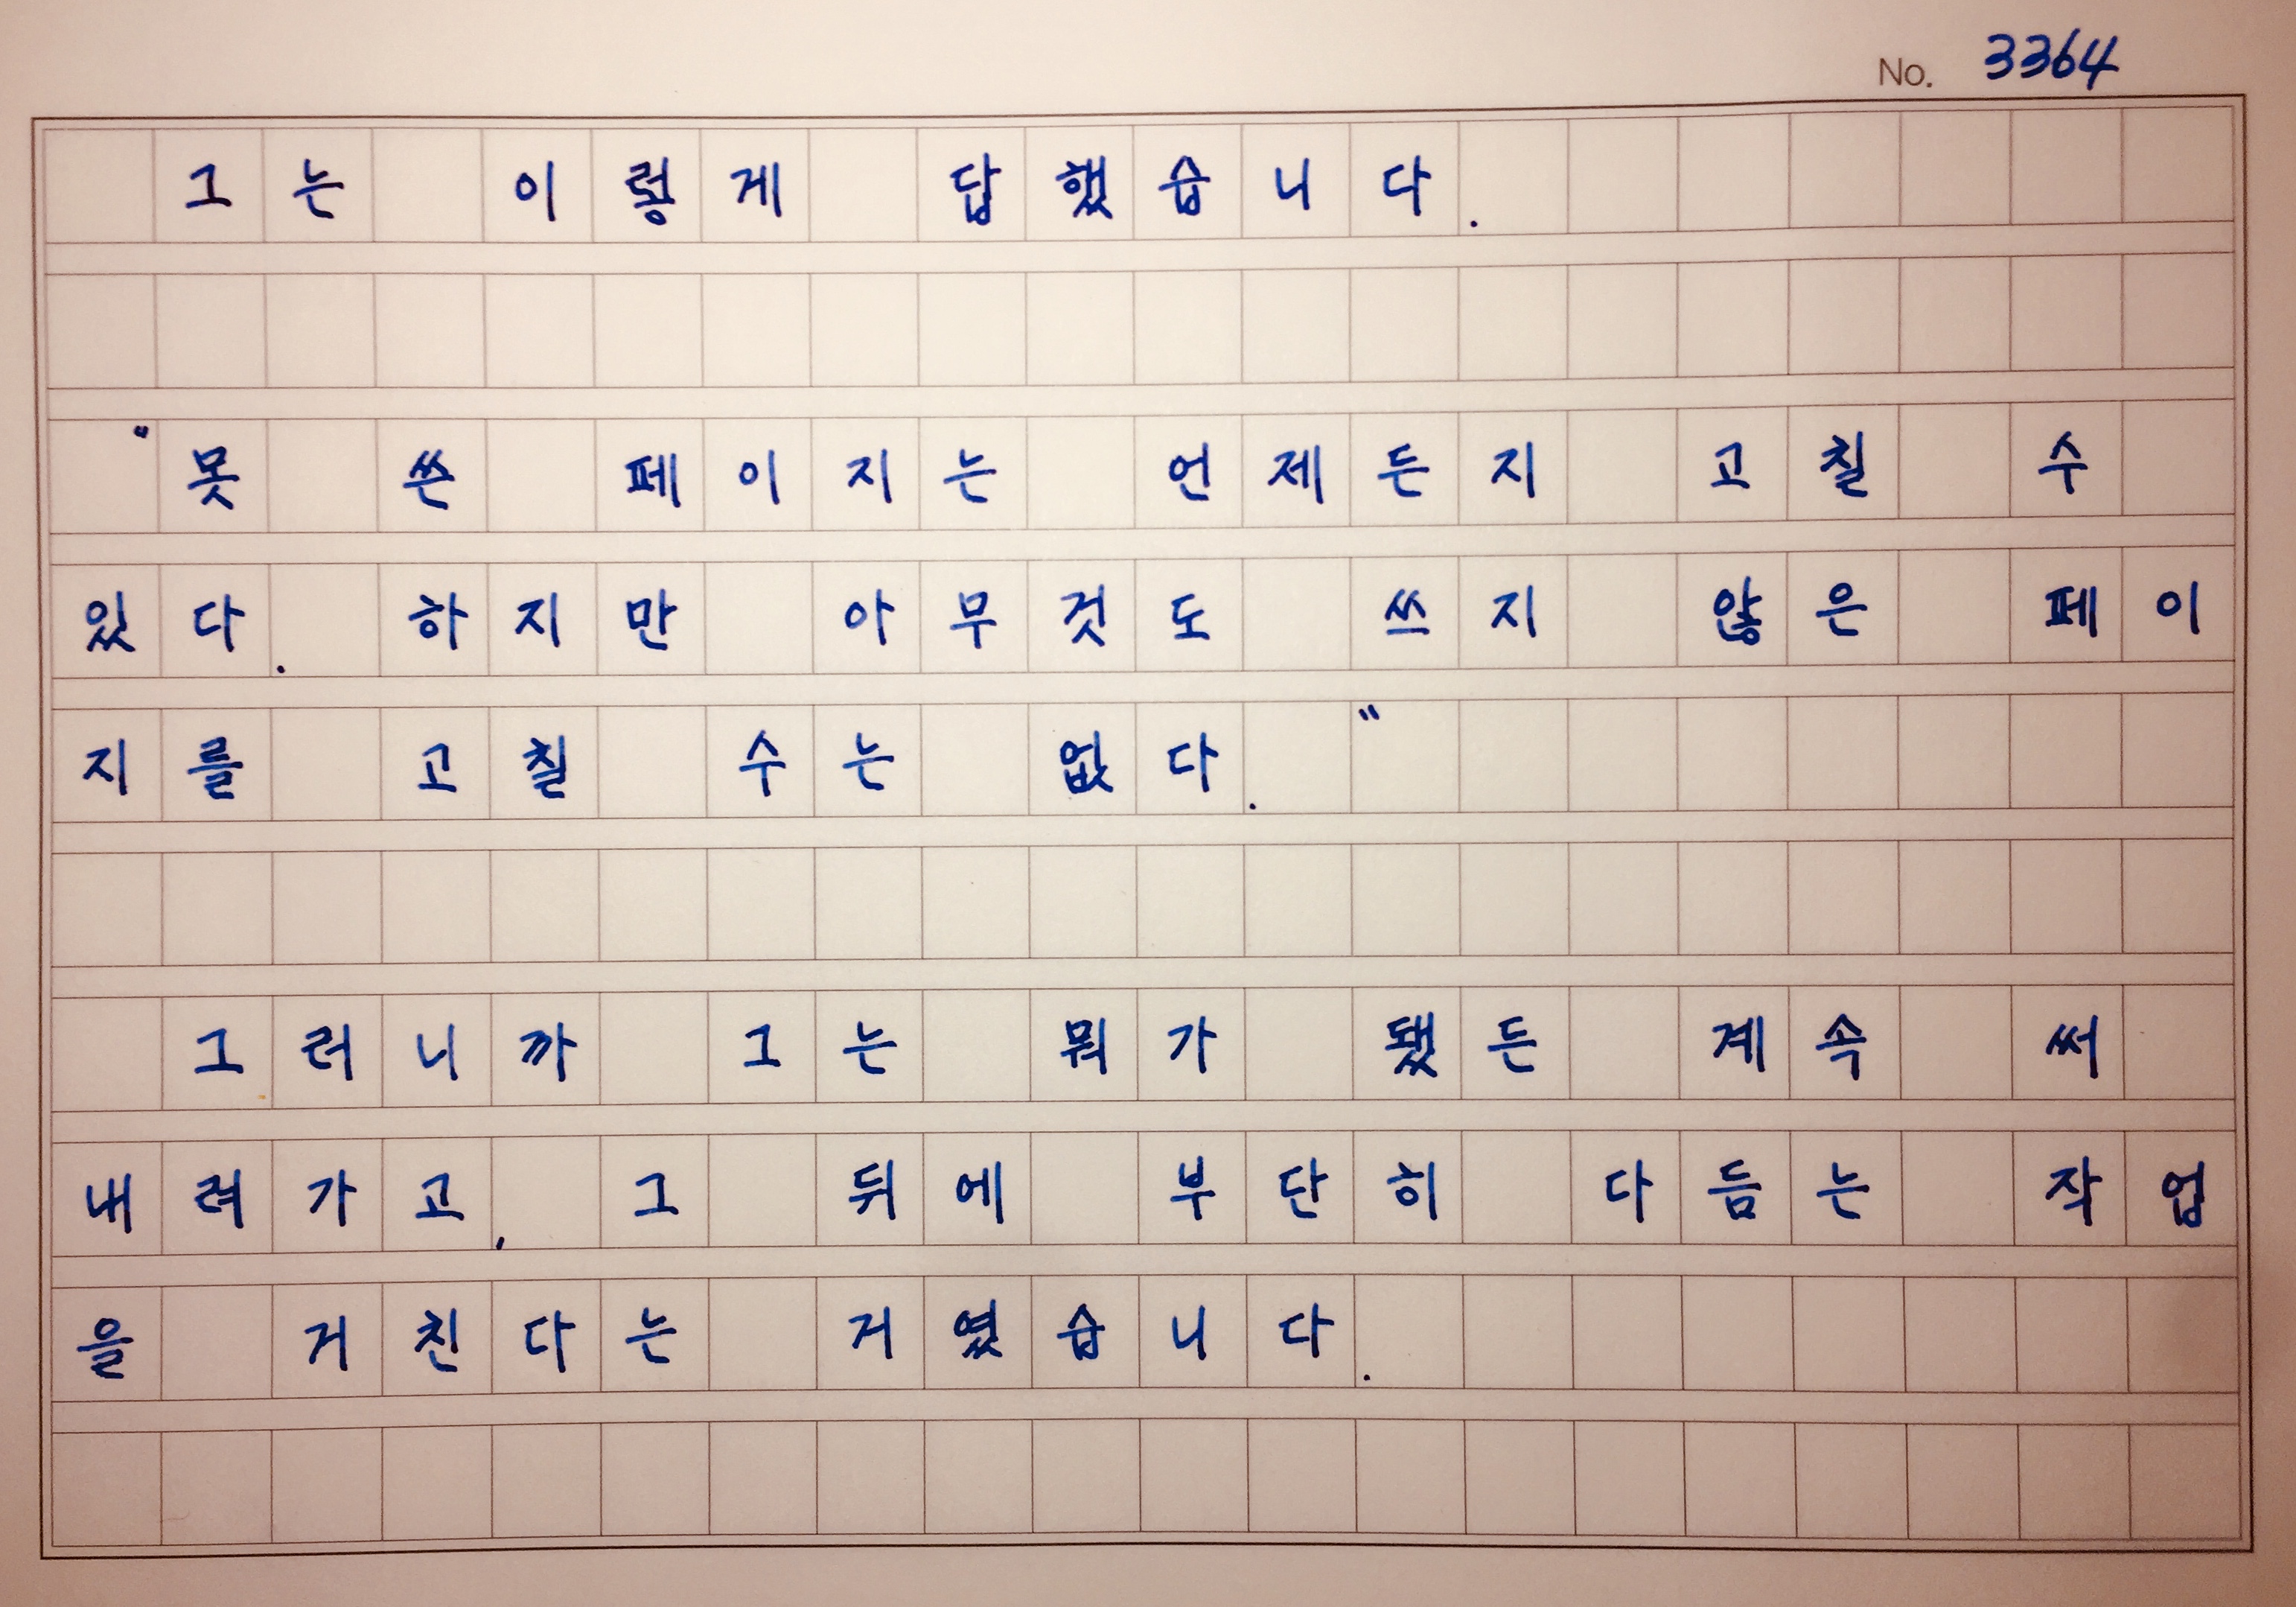 No. 3364
그는 이렇게 답했습니다.
"못 쓴 페이지는 언제든지 고칠 수
있다. 하지만 아무것도 쓰지 않은 페이
지를 고칠 수는 없다."
그러니까 그는 뭐가 됐든 계속 써
내려가고, 그 뒤에 부단히 다듬는 작업
을 거친다는 거였습니다.